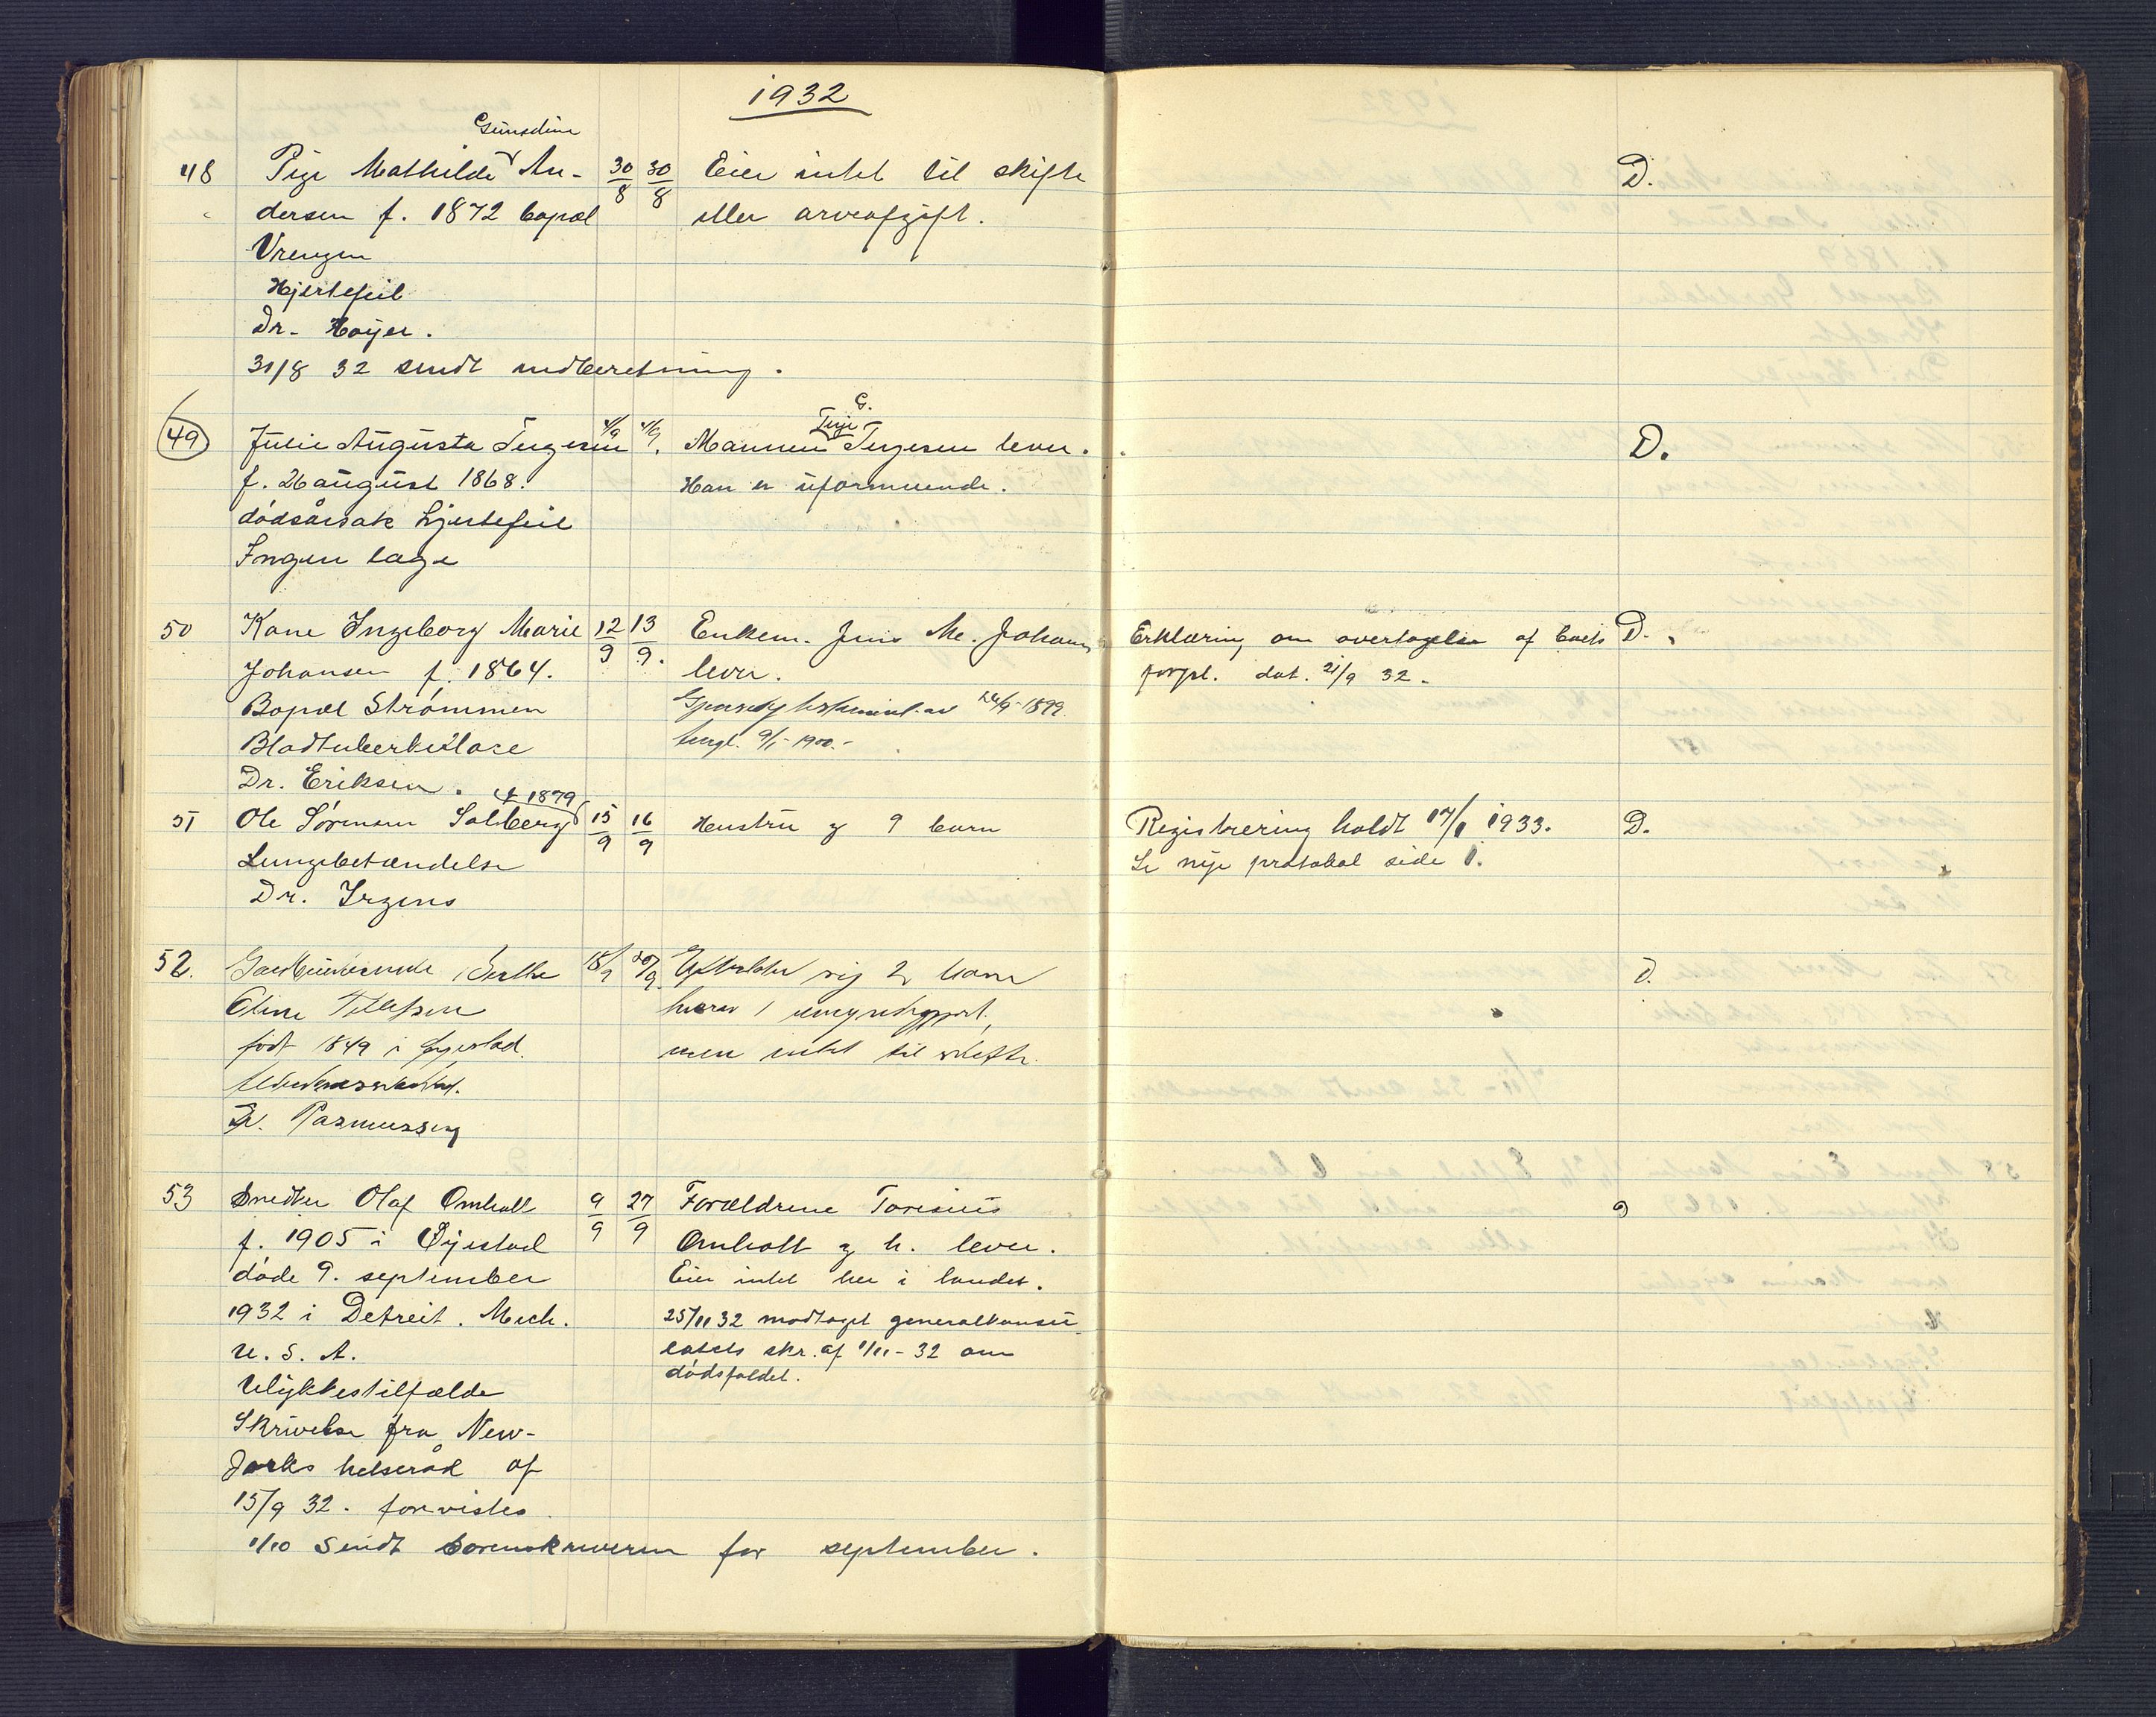 1932
Gunsdine
48 Pige Mathilde An- 30/8 30/8 Eier intet til skifte D.
dersen f. 1872 bopæl eller arveafgift.
Vrengen
Hjertefeil
Dr. Høyer.
31/8 32 sendt indberetning.
G.
Terje
49 Julie Augusta Terjesen Mannen Terjesen lever. D.
f. 26 august 1868. Han er uformuende.
dødsårsak hjertefeil
Ingen læge
50 Kone Ingeborg Marie 12/9 13/9. Enkem. Jens M. Johans Erklæring om overtagelse af boets D.
Johansen f. 1864. lever. forpl. dat. 21/9 32.
Bopæl Strømmen Gjensidig testament av 24/9-1899
Blodtuberkulose tingl. 9/1-1900.-
Dr. Eriksen.
f 1879
51 Ole Sørensen Solberg 15/9 16/9 Hustru og 9 barn Registrering holdt 17/1 1933. D.
Lungebetændelse Se nye protokol side 1.
Dr. Irgens
52. Berthe 18/9 20/9 Efterlater sig 2 barn D.
Oline Tellefsen herav 1
født 1849 i Øyestad. men intet til skifte.
Dr. Rasmussen
53 Snedker Olaf Omholt 9/9 27/9 Forældrene Taresius D
f. 1905 i Øyestad Omholt og h. lever.
døde 9. september Eier intet her i landet.
1932 i Detroit. Mich. 25/11 32 modtaget generalkonsu-
U. S. A. latets skr. af 1/11-32 om
dødsfaldet.
Ulykkestilfælde
Skrivelse fra New-
Jorks helseråd af
15/9 32. forevistes.
1/10 Sendt sorenskriveren for september.